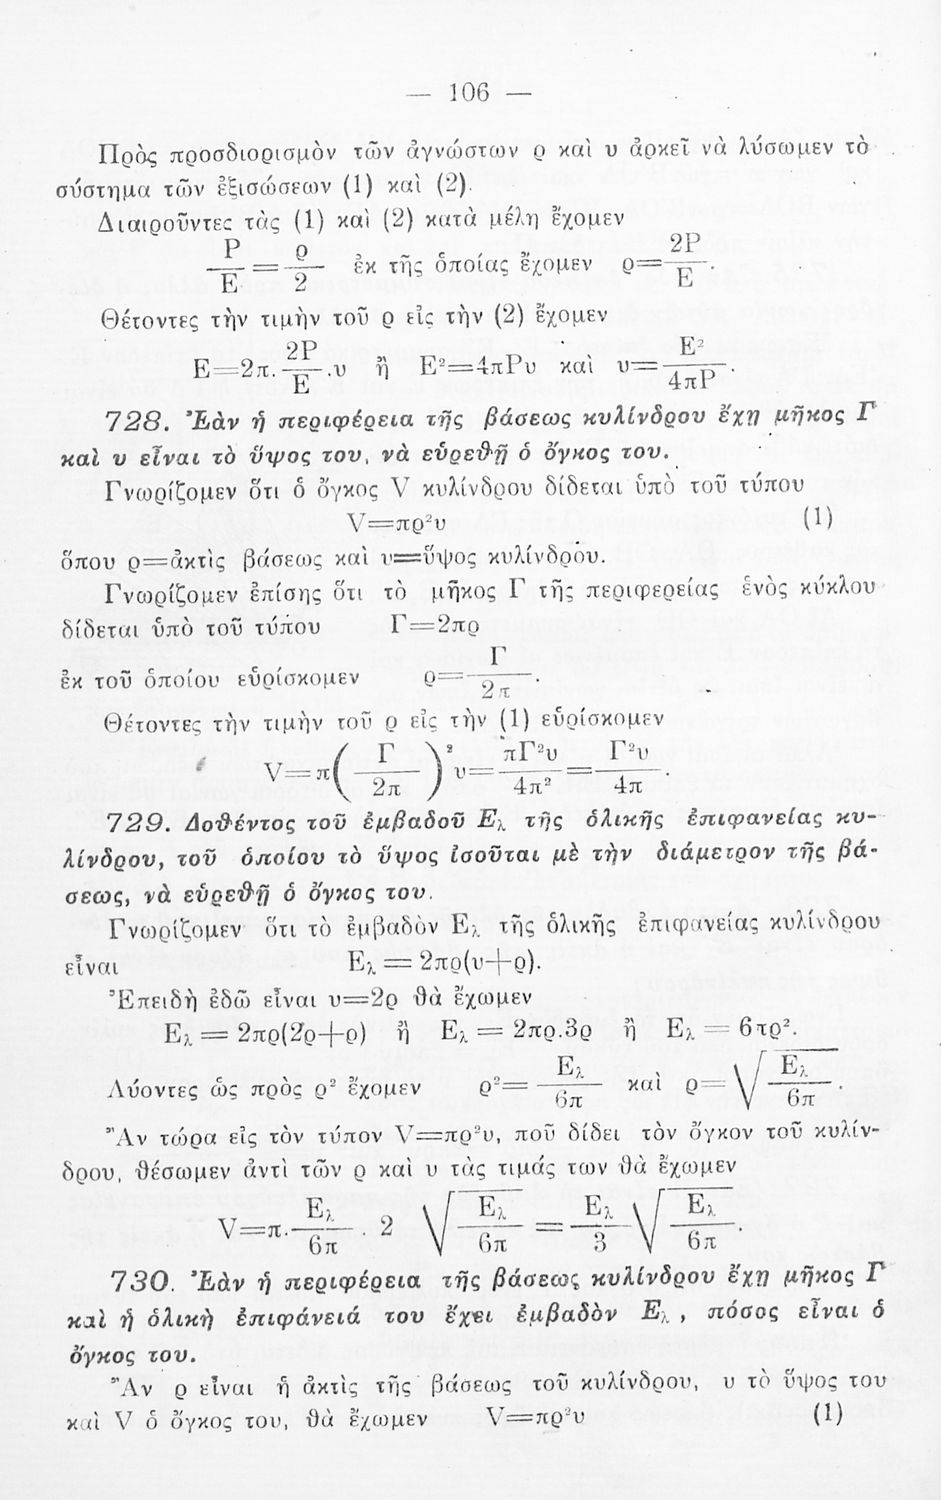 — 106 —
Πρὸς προσδιορισμὸν τῶν ἀγνώστων ρ καὶ υ ἀρκεῖ νὰ λύσωμεν τὸ
σύστημα τῶν ἐξισώσεων (1) καὶ (2).
Διαιροῦντες τὰς (1) καὶ (2) κατὰ μέλη ἔχομεν
P/E = ρ/2 ἐκ τῆς ὁποίας ἔχομεν ρ=2P/E.
Θέτοντες τὴν τιμὴν τοῦ ρ εἰς τὴν (2) ἔχομεν
E=2π.2P/E.υ ἢ E²=4πPυ καὶ υ=E²/4πP.
728. Ἐὰν ἡ περιφέρεια τῆς βάσεως κυλίνδρου ἔχῃ μῆκος Γ
καὶ υ εἶναι τὸ ὕψος του, νὰ εὑρεθῇ ὁ ὄγκος του.
Γνωρίζομεν ὅτι ὁ ὄγκος V κυλίνδρου δίδεται ὑπὸ τοῦ τύπου
V=πρ²υ (1)
ὅπου ρ=ἀκτὶς βάσεως καὶ υ=ὕψος κυλίνδρου.
Γνωρίζομεν ἐπίσης ὅτι τὸ μῆκος Γ τῆς περιφερείας ἑνὸς κύκλου
δίδεται ὑπὸ τοῦ τύπου Γ=2πρ
ἐκ τοῦ ὁποίου εὑρίσκομεν ρ=Γ/2π.
Θέτοντες τὴν τιμὴν τοῦ ρ εἰς τὴν (1) εὑρίσκομεν
V=π(Γ/2π)²υ=πΓ²υ/4π²=Γ²υ/4π.
729. Δοθέντος τοῦ ἐμβαδοῦ Ελ τῆς ὁλικῆς ἐπιφανείας κυ-
λίνδρου, τοῦ ὁποίου τὸ ὕψος ἰσοῦται μὲ τὴν διάμετρον τῆς βά-
σεως, νὰ εὑρεθῇ ὁ ὄγκος του.
Γνωρίζομεν ὅτι τὸ ἐμβαδὸν Ελ τῆς ὁλικῆς ἐπιφανείας κυλίνδρου
εἶναι Ελ = 2πρ(υ+ρ).
Ἐπειδὴ ἐδῶ εἶναι υ=2ρ θὰ ἔχωμεν
Ελ = 2πρ(2ρ+ρ) ἢ Ελ = 2πρ.3ρ ἢ Ελ = 6πρ².
Λύοντες ὡς πρὸς ρ² ἔχομεν ρ²=Ελ/6π καὶ ρ=√(Ελ/6π).
Ἂν τώρα εἰς τὸν τύπον V=πρ²υ, ποῦ δίδει τὸν ὄγκον τοῦ κυλίν-
δρου, θέσωμεν ἀντὶ τῶν ρ καὶ υ τὰς τιμάς των θὰ ἔχωμεν
V=π.Ελ/6π . 2 √(Ελ/6π) = Ελ/3 √(Ελ/6π).
730. Ἐὰν ἡ περιφέρεια τῆς βάσεως κυλίνδρου ἔχῃ μῆκος Γ
καὶ ἡ ὁλικὴ ἐπιφάνειά του ἔχει ἐμβαδὸν Ελ , πόσος εἶναι ὁ
ὄγκος του.
Ἂν ρ εἶναι ἡ ἀκτὶς τῆς βάσεως τοῦ κυλίνδρου, υ τὸ ὕψος του
καὶ V ὁ ὄγκος του, θὰ ἔχωμεν V=πρ²υ (1)